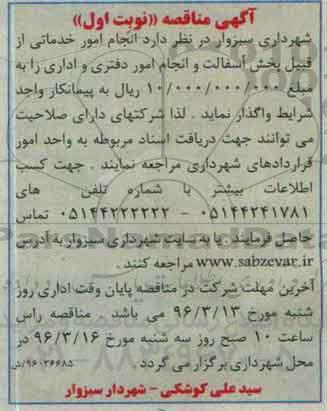 آگهی مناقصه «نوبت اول»
شهرداری سبزوار در نظر دارد انجام امور خدماتی از
قبیل پخش آسفالت و انجام امور دفتری و اداری را به
مبلغ ۱۰/۰۰۰/۰۰۰/۰۰۰ ریال به پیمانکار واجد
شرایط واگذار نماید . لذا شرکتهای دارای صلاحیت
می توانند جهت دریافت اسناد مربوطه به واحد امور
قراردادهای شهرداری مراجعه نمایند . جهت کسب
اطلاعات بیشتر با شماره تلفن های
۰۵۱۴۴۲۴۱۷۸۱ - ۰۵۱۴۴۲۲۲۲۲۲ تماس
حاصل فرمایند . یا به سایت شهرداری سبزوار به آدرس
www.sabzevar.ir مراجعه کنند .
آخرین مهلت شرکت در مناقصه پایان وقت اداری روز
شنبه مورخ ۹۶/۳/۱۳ می باشد . مناقصه راس
ساعت ۱۰ صبح روز سه شنبه مورخ ۹۶/۳/۱۶ در
محل شهرداری برگزار می گردد . ۹۶۰۳۶۶۸۵/ن
سید علی کوشکی - شهردار سبزوار